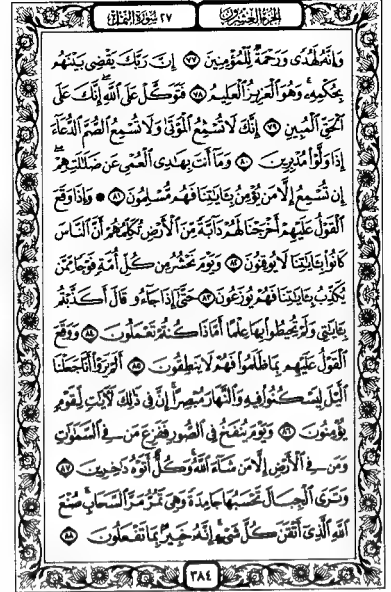 الجزء العشرون ٢٧ سورة النمل
وَإِنَّهُۥ لَهُدًى وَرَحْمَةٌ لِّلْمُؤْمِنِينَ ٧٧ إِنَّ رَبَّكَ يَقْضِى بَيْنَهُم
بِحُكْمِهِۦ وَهُوَ ٱلْعَزِيزُ ٱلْعَلِيمُ ٧٨ فَتَوَكَّلْ عَلَى ٱللَّهِ إِنَّكَ عَلَى
ٱلْحَقِّ ٱلْمُبِينِ ٧٩ إِنَّكَ لَا تُسْمِعُ ٱلْمَوْتَىٰ وَلَا تُسْمِعُ ٱلصُّمَّ ٱلدُّعَآءَ
إِذَا وَلَّوْا۟ مُدْبِرِينَ ٨٠ وَمَآ أَنتَ بِهَـٰدِى ٱلْعُمْىِ عَن ضَلَـٰلَتِهِمْ
إِن تُسْمِعُ إِلَّا مَن يُؤْمِنُ بِـَٔايَـٰتِنَا فَهُم مُّسْلِمُونَ ٨١ وَإِذَا وَقَعَ
ٱلْقَوْلُ عَلَيْهِمْ أَخْرَجْنَا لَهُمْ دَآبَّةً مِّنَ ٱلْأَرْضِ تُكَلِّمُهُمْ أَنَّ ٱلنَّاسَ
كَانُوا۟ بِـَٔايَـٰتِنَا لَا يُوقِنُونَ ٨٢ وَيَوْمَ نَحْشُرُ مِن كُلِّ أُمَّةٍ فَوْجًا مِّمَّن
يُكَذِّبُ بِـَٔايَـٰتِنَا فَهُمْ يُوزَعُونَ ٨٣ حَتَّىٰٓ إِذَا جَآءُو قَالَ أَكَذَّبْتُم
بِـَٔايَـٰتِى وَلَمْ تُحِيطُوا۟ بِهَا عِلْمًا أَمَّاذَا كُنتُمْ تَعْمَلُونَ ٨٤ وَوَقَعَ
ٱلْقَوْلُ عَلَيْهِم بِمَا ظَلَمُوا۟ فَهُمْ لَا يَنطِقُونَ ٨٥ أَلَمْ يَرَوْا۟ أَنَّا جَعَلْنَا
ٱلَّيْلَ لِيَسْكُنُوا۟ فِيهِ وَٱلنَّهَارَ مُبْصِرًا إِنَّ فِى ذَٰلِكَ لَـَٔايَـٰتٍ لِّقَوْمٍ
يُؤْمِنُونَ ٨٦ وَيَوْمَ يُنفَخُ فِى ٱلصُّورِ فَفَزِعَ مَن فِى ٱلسَّمَـٰوَٰتِ
وَمَن فِى ٱلْأَرْضِ إِلَّا مَن شَآءَ ٱللَّهُ وَكُلٌّ أَتَوْهُ دَٰخِرِينَ ٨٧
وَتَرَى ٱلْجِبَالَ تَحْسَبُهَا جَامِدَةً وَهِىَ تَمُرُّ مَرَّ ٱلسَّحَابِ صُنْعَ
ٱللَّهِ ٱلَّذِىٓ أَتْقَنَ كُلَّ شَىْءٍ إِنَّهُۥ خَبِيرٌۢ بِمَا تَفْعَلُونَ ٨٨
٣٨٤